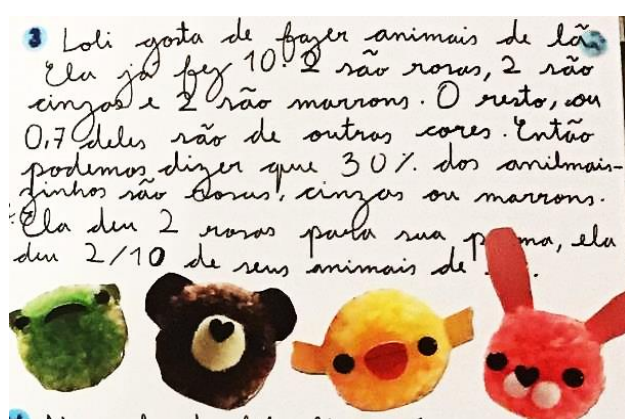 3 Loli gosta de fazer animais de lã.
Ela já fez 10. 2 são rosas, 2 são
cinzas e 2 são marrons. O resto, ou
0,7 deles são de outras cores. Então
podemos dizer que 30% dos anilmais-
zinhos são rosas, cinzas ou marrons.
Ela deu 2 rosas para sua prima, ela
deu 2/10 de seus animais de